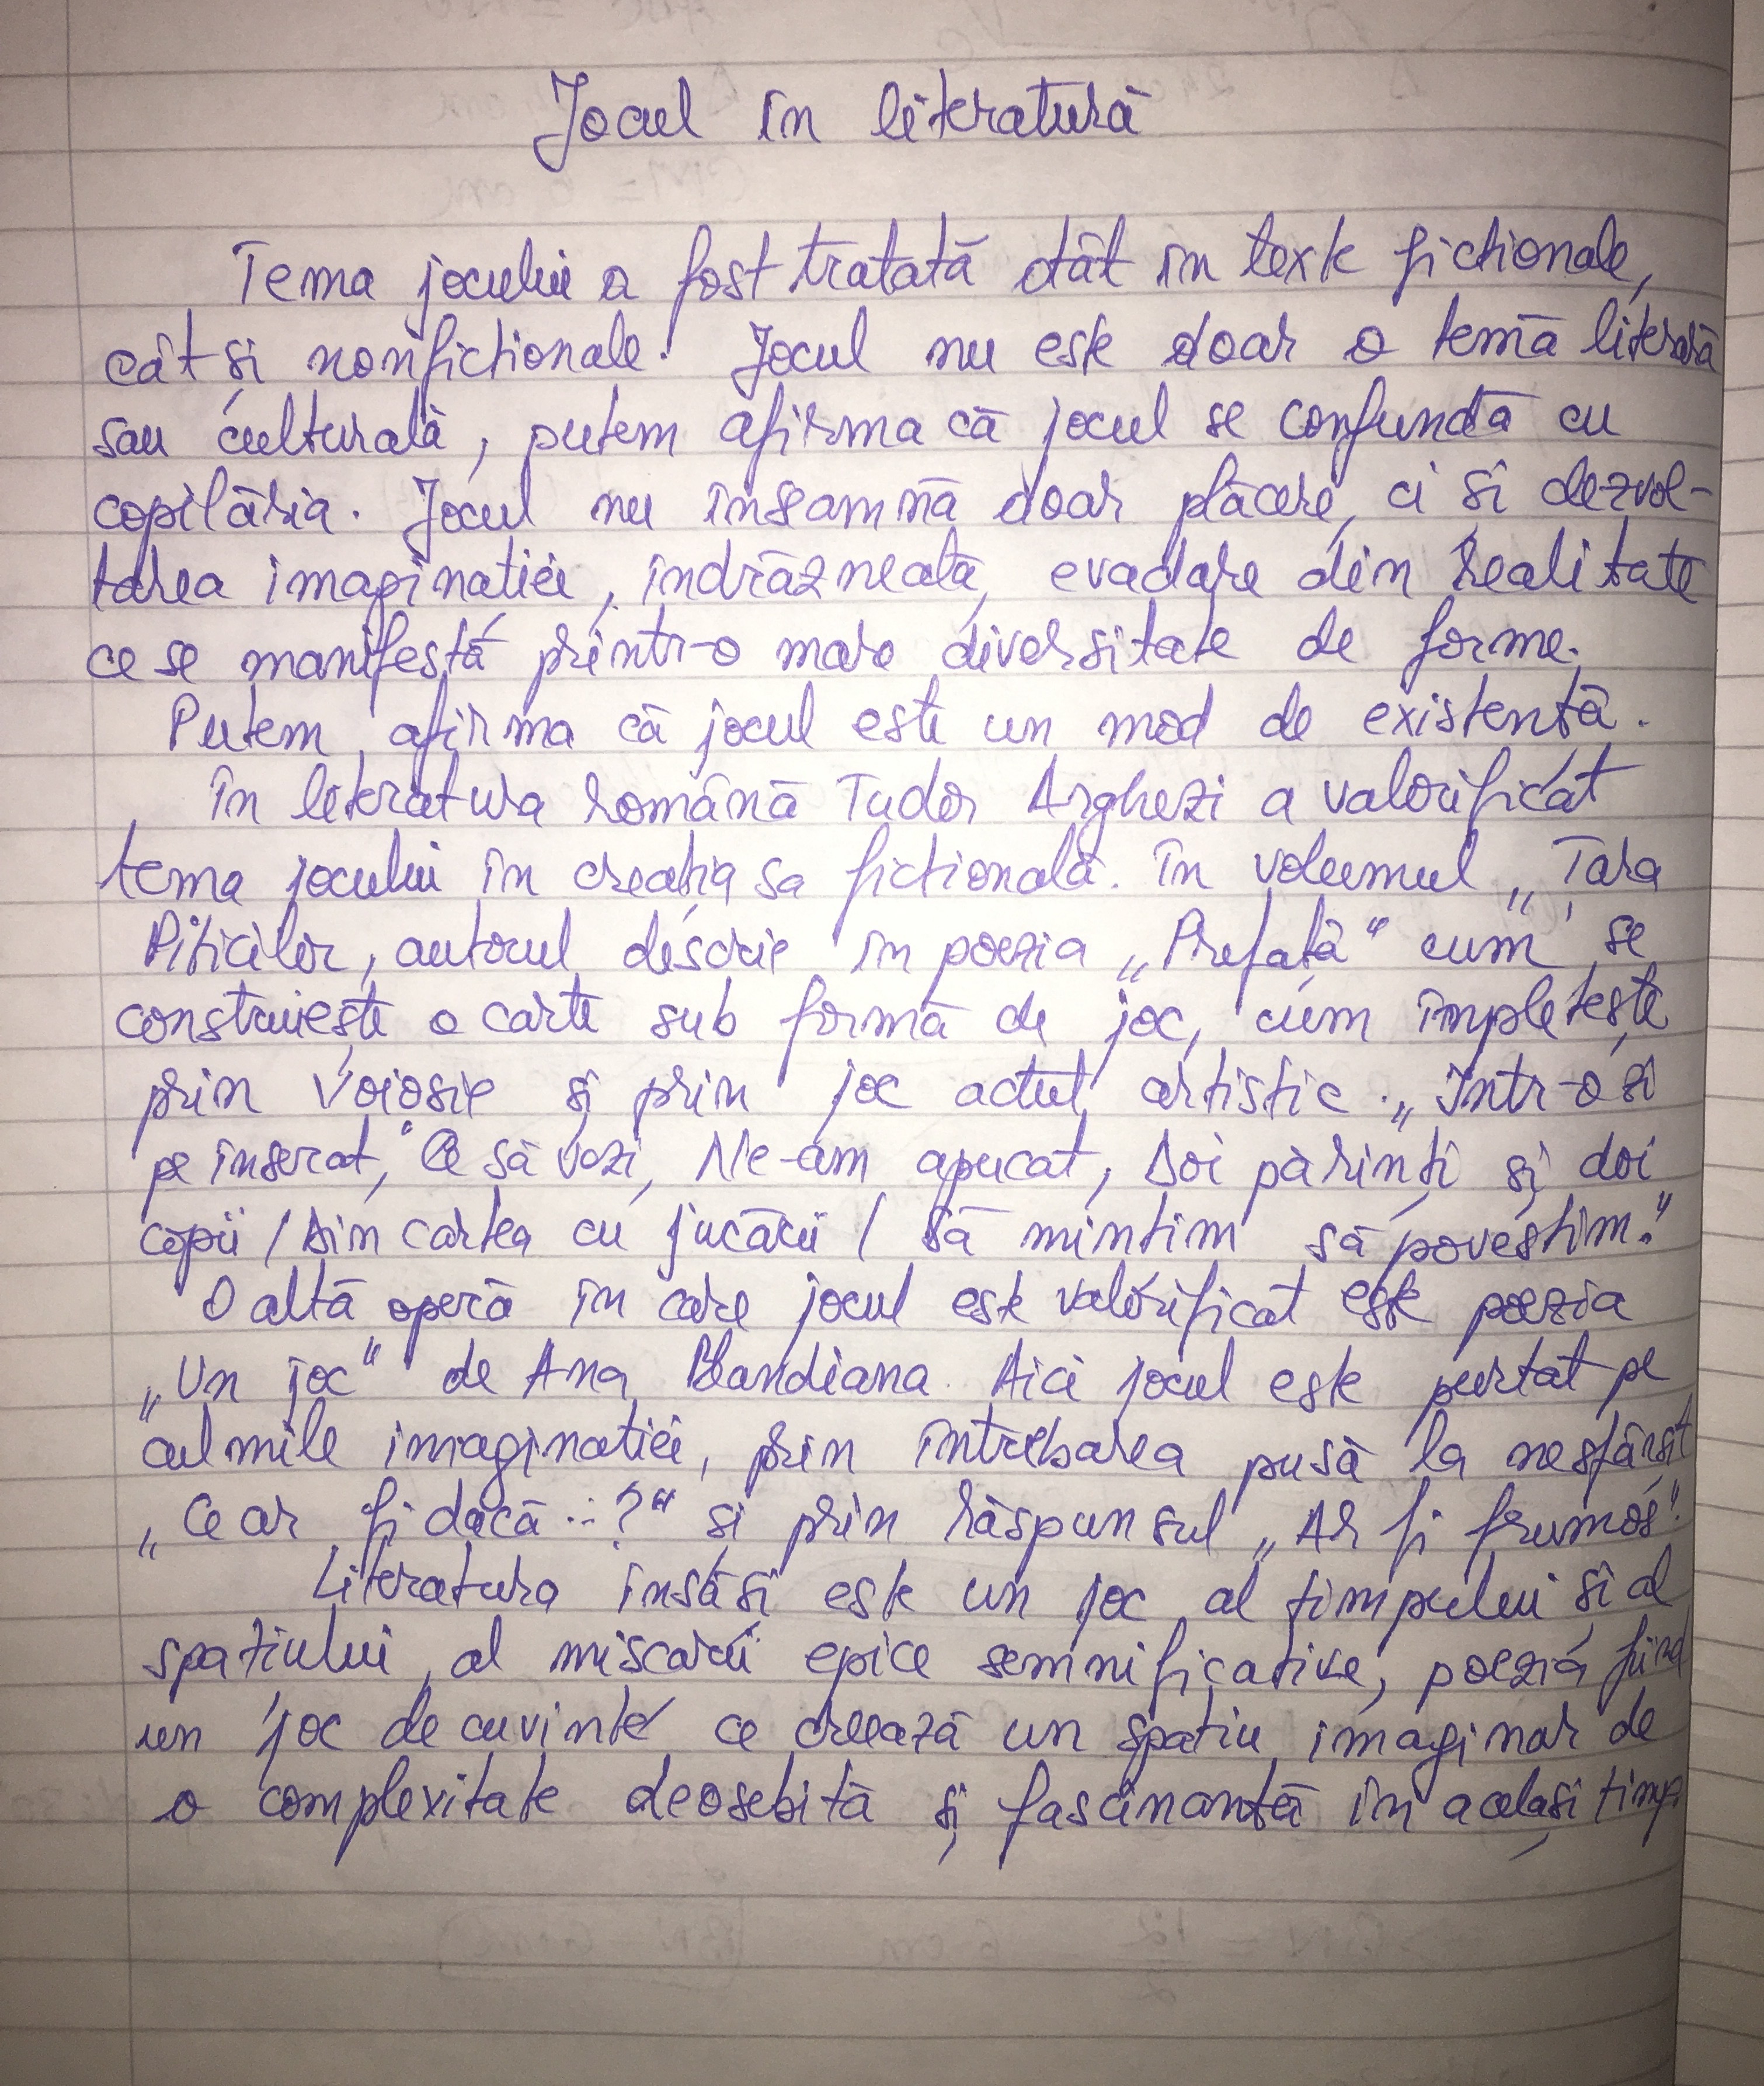 Jocul în literatură
Tema jocului a fost tratată atât în texte ficționale,
cât și nonficționale. Jocul nu este doar o temă literară
sau culturală, putem afirma că jocul se confundă cu
copilăria. Jocul nu înseamnă doar plăcere, ci și dezvol-
tarea imaginației, îndrăzneală, evadare din realitate
ce se manifestă printr-o mare diversitate de forme.
Putem afirma că jocul este un mod de existență.
În literatura română Tudor Arghezi a valorificat
tema jocului în creația sa ficțională. În volumul „Țara
Piticilor, autorul descrie în poezia „Prefață“ cum se
construiește o carte sub formă de joc, cum împletește
prin voioșie și prin joc actul artistic. „Într-o zi
pe înserat, Ce să vezi, Ne-am apucat, Doi părinți și doi
copii / Din cartea cu jucării / Să mințim să povestim.“
O altă operă în care jocul este valorificat este poezia
„Un joc“ de Ana Blandiana. Aici jocul este purtat pe
culmile imaginației, prin întrebarea pusă la nesfârșit
„Ce ar fi dacă ...?“ și prin răspunsul „Ar fi frumos“.
Literatura însăși este un joc al timpului și al
spațiului, al mișcării epice semnificative, poezia fiind
un joc de cuvinte ce creează un spațiu imaginar de
o complexitate deosebită și fascinantă în același timp.